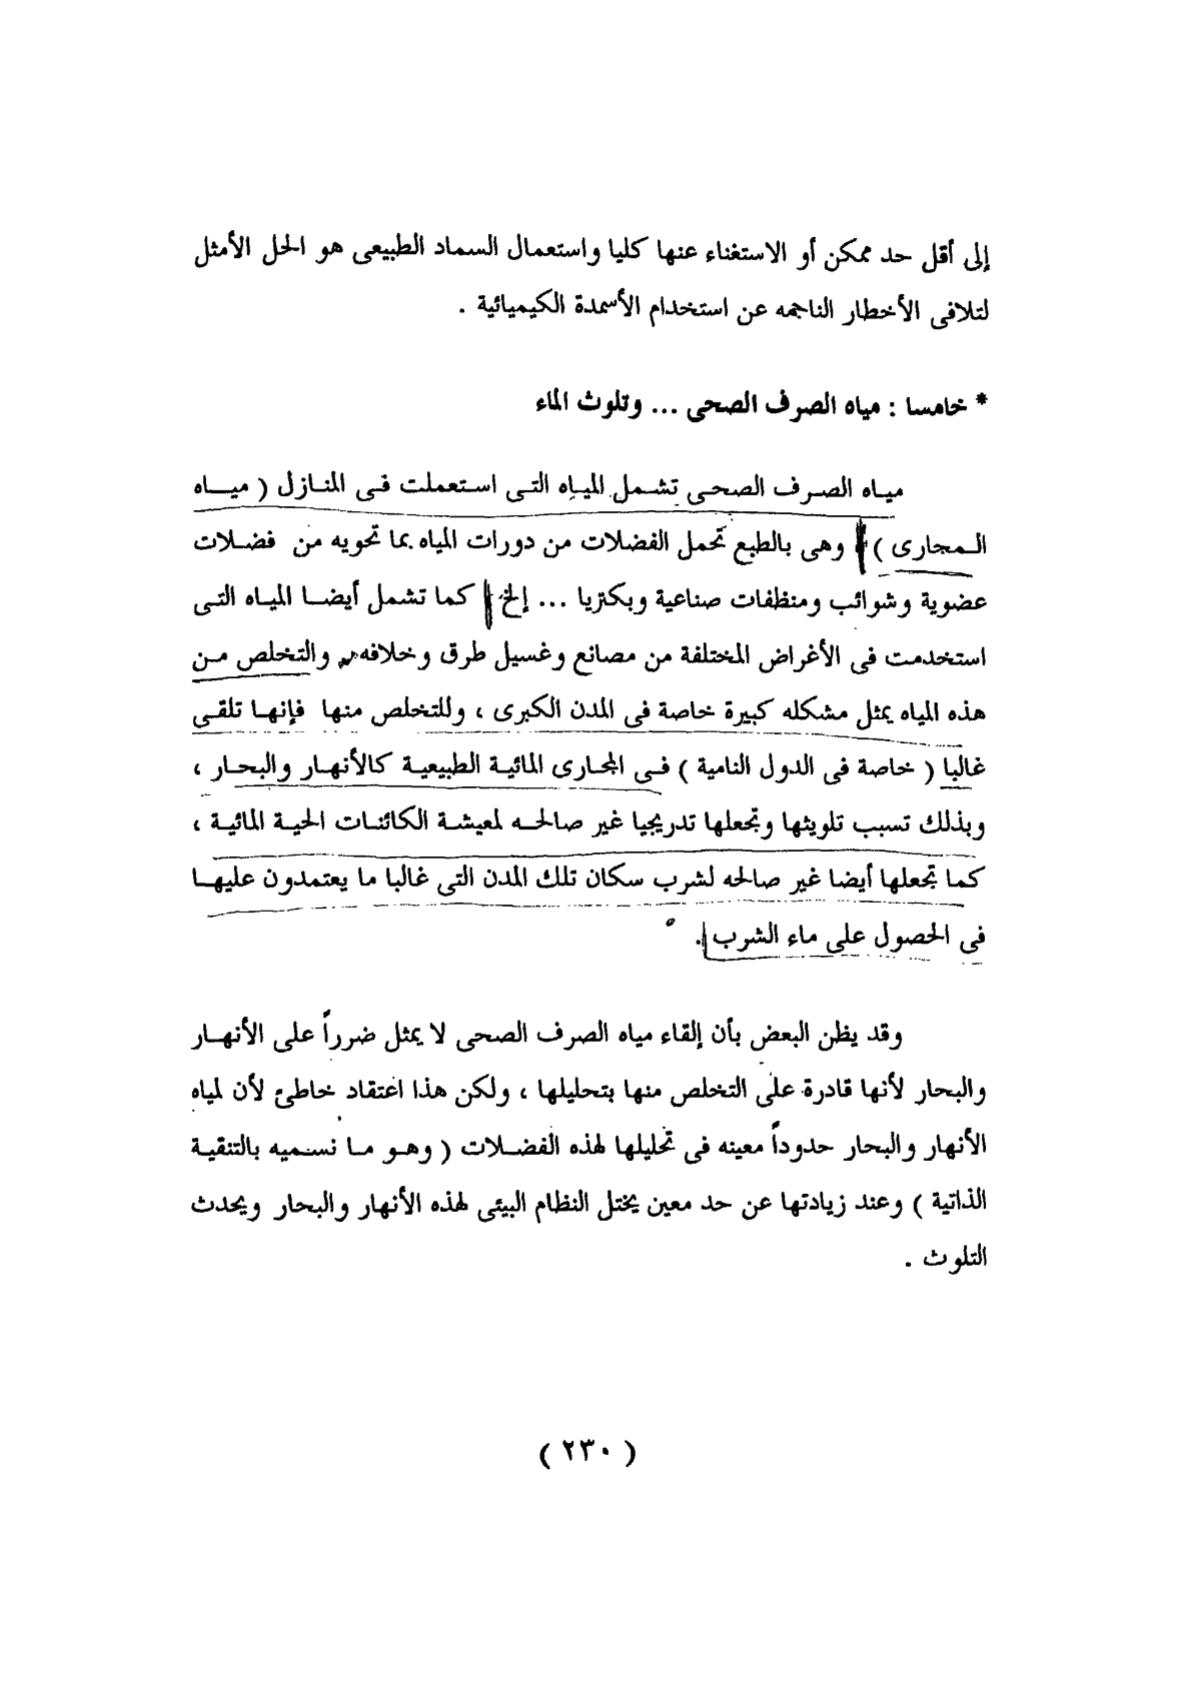 إلى أقل حد ممكن أو الاستغناء عنها كليا واستعمال السماد الطبيعى هو الحل الأمثل
لتلافى الأخطار الناجمه عن استخدام الأسمدة الكيميائية .
* خامسا : مياه الصرف الصحى ... وتلوث الماء
مياه الصرف الصحى تشمل المياه التى استعملت فى المنازل ( مياه
المجارى ) وهى بالطبع تحمل الفضلات من دورات المياه بما تحويه من فضلات
عضوية وشوائب ومنظفات صناعية وبكتريا ... إلخ كما تشمل أيضا المياه التى
استخدمت فى الأغراض المختلفة من مصانع وغسيل طرق وخلافه والتخلص من
هذه المياه يمثل مشكله كبيرة خاصة فى المدن الكبرى ، وللتخلص منها فإنها تلقى
غالبا ( خاصة فى الدول النامية ) فى المجارى المائية الطبيعية كالأنهار والبحار ،
وبذلك تسبب تلويثها وتجعلها تدريجيا غير صالحه لمعيشة الكائنات الحية المائية ،
كما تجعلها أيضا غير صالحه لشرب سكان تلك المدن التى غالبا ما يعتمدون عليها
فى الحصول على ماء الشرب .
وقد يظن البعض بأن إلقاء مياه الصرف الصحى لا يمثل ضرراً على الأنهار
والبحار لأنها قادرة على التخلص منها بتحليلها ، ولكن هذا اعتقاد خاطئ لأن لمياه
الأنهار والبحار حدوداً معينه فى تحليلها لهذه الفضلات ( وهو ما نسميه بالتنقية
الذاتية ) وعند زيادتها عن حد معين يختل النظام البيئى لهذه الأنهار والبحار ويحدث
التلوث .
( ٢٣٠ )